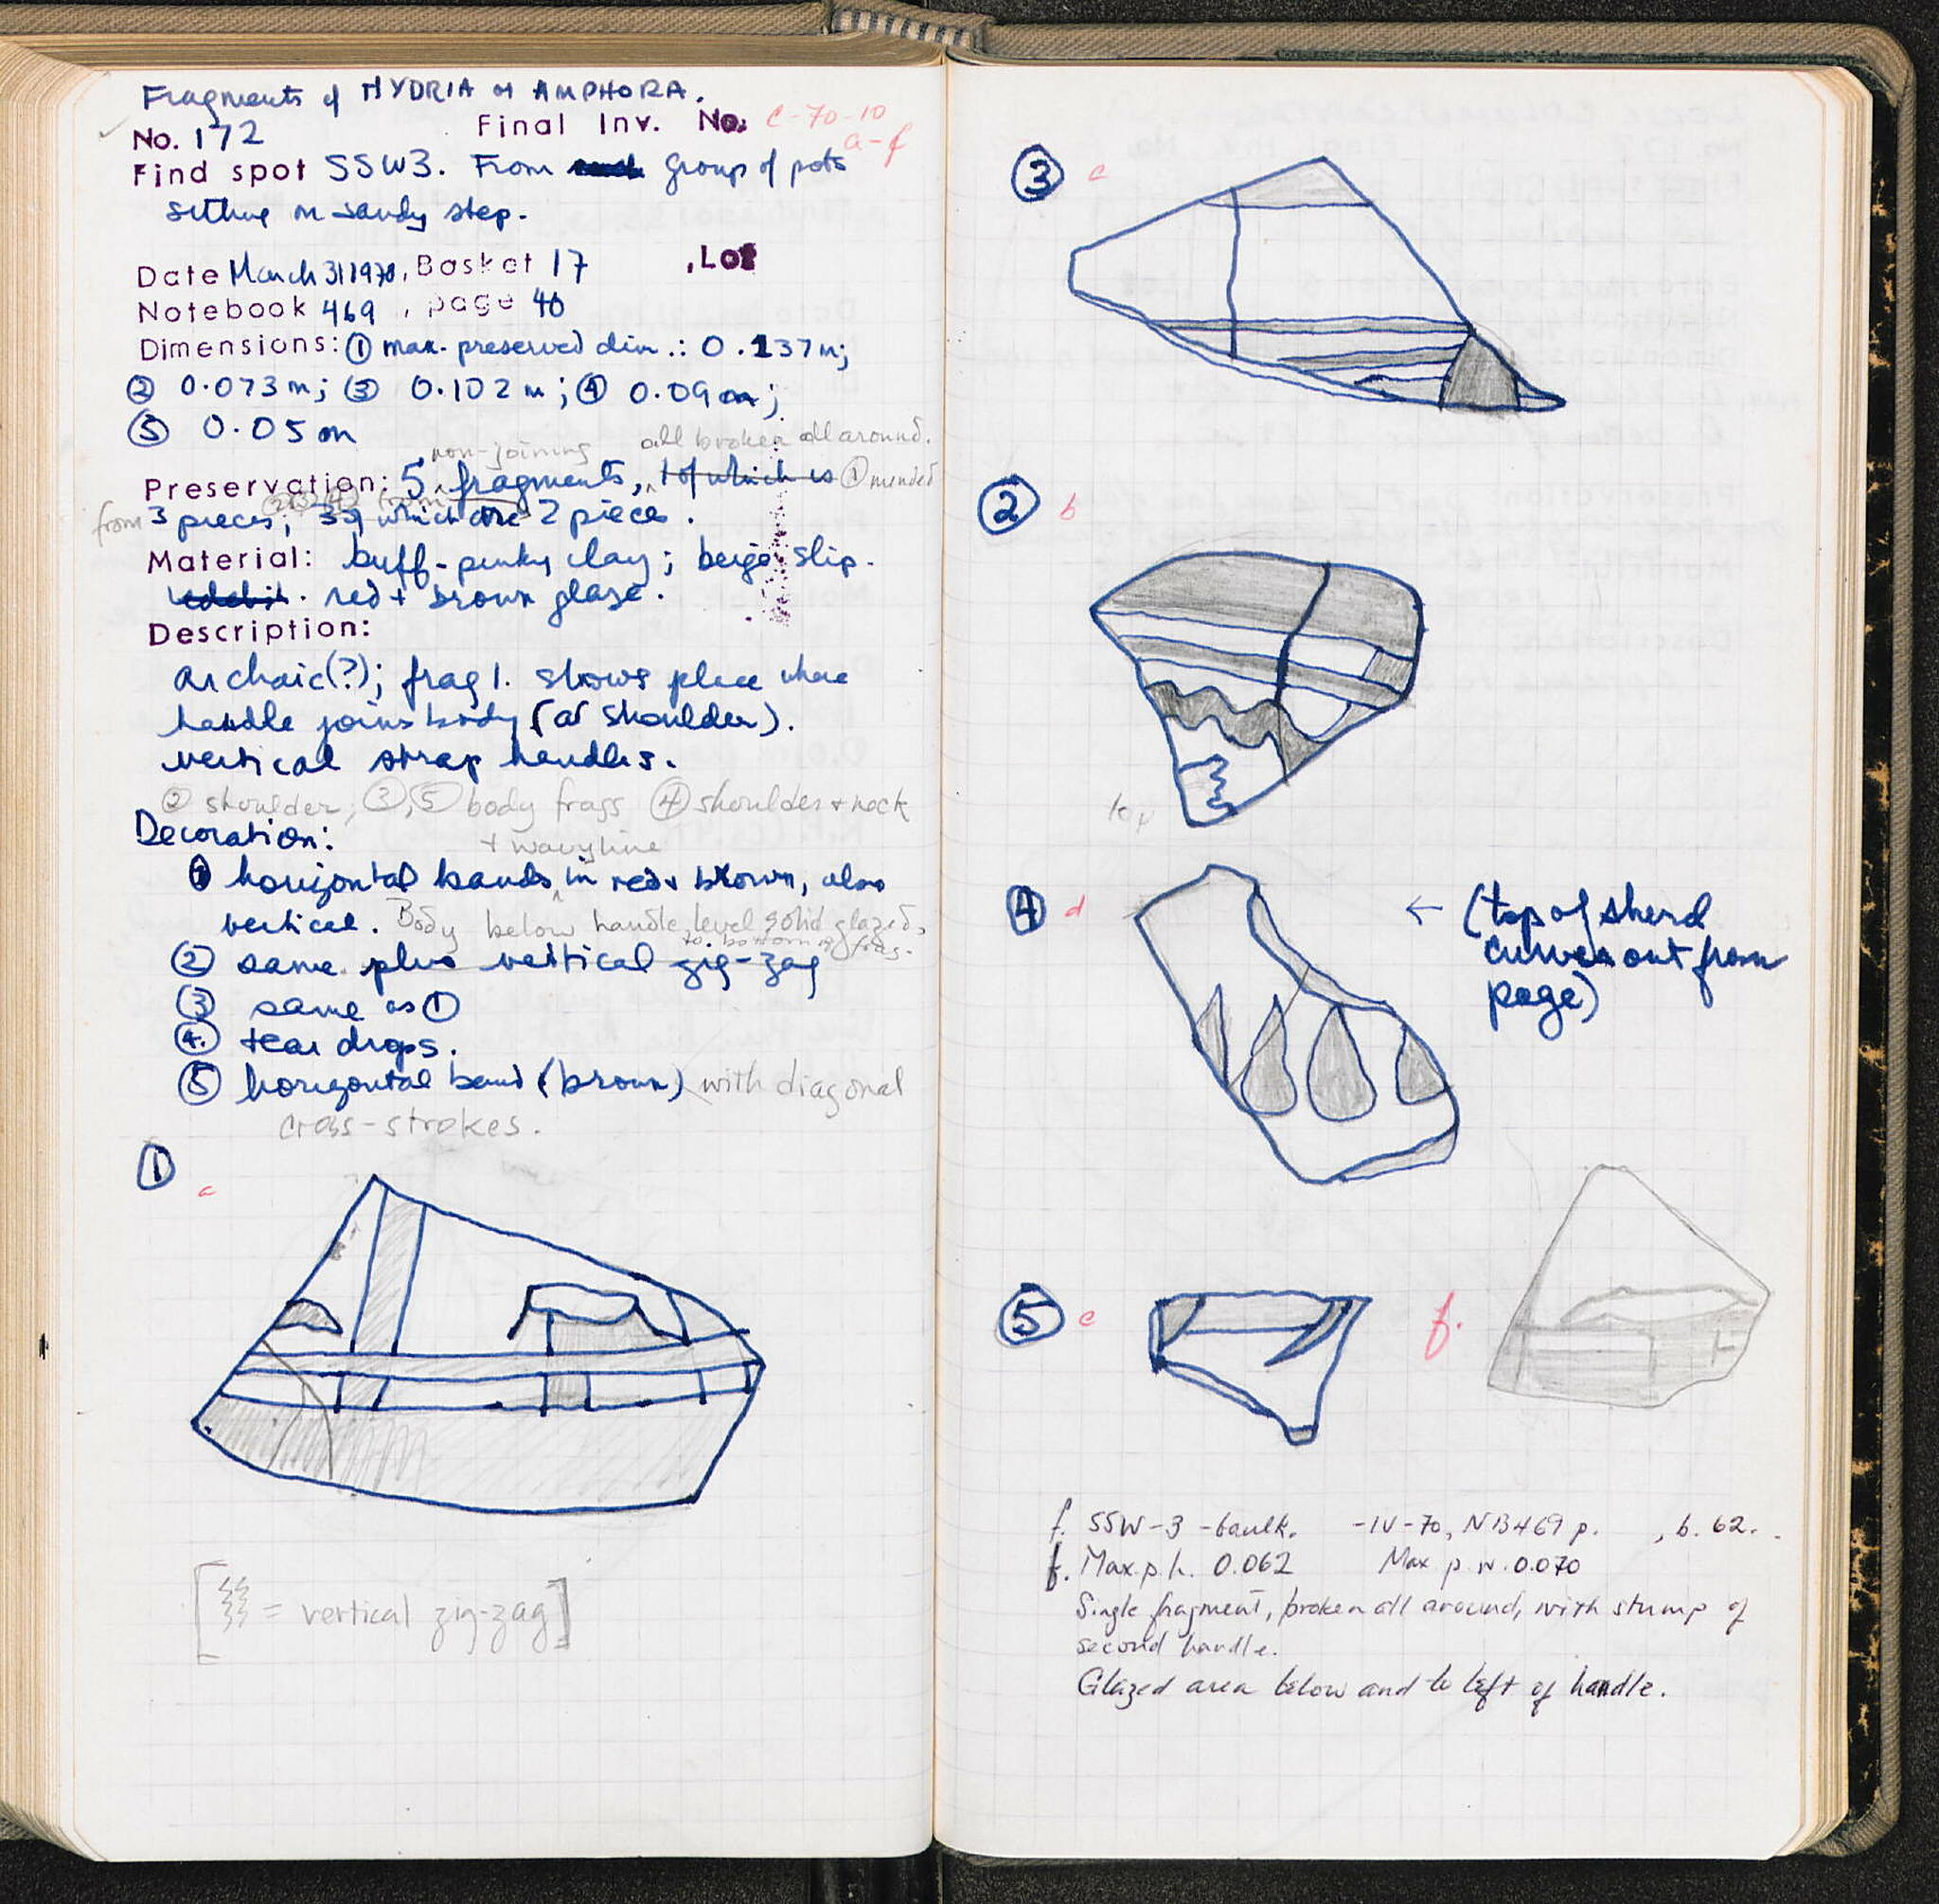 Fragments of HYDRIA or AMPHORA.
No. 172 Final Inv. No. C-70-10
a-f
Find spot SSW3. From group of pots
sitting on sandy step.
Date March 31 1970, Basket 17 , Lot
Notebook 469 , page 46
Dimensions: ① max. preserved dim.: 0.137m;
② 0.073m; ③ 0.102m; ④ 0.09m;
⑤ 0.05m
non-joining all broken all around.
Preservation: 5 fragments, 1 of which is ① mended
②③④ from
from 3 pieces; 3 of which are 2 pieces.
Material: buff-pinky clay; beige slip.
red + brown glaze.
Description:
archaic(?); frag 1. shows place where
handle joins body (at shoulder).
vertical strap handles.
② shoulder; ③,⑤ body frags ④ shoulder + neck
Decoration:
+ wavy line
① horizontal bands in red + brown, also
vertical. Body below handle level solid glazed,
to bottom of frag.
② same plus vertical zig-zag
③ same as ①
④ tear drops.
⑤ horizontal band (brown) with diagonal
cross-strokes.
① a
[ = vertical zig-zag]
③ c
② b
top
④ d ← (top of sherd
curves out from
page)
⑤ e f.
f. SSW-3 -baulk. -IV-70, NB469 p. , b. 62.
f. Max. p. h. 0.062 Max p. w. 0.070
Single fragment, broken all around, with stump of
second handle.
Glazed area below and to left of handle.